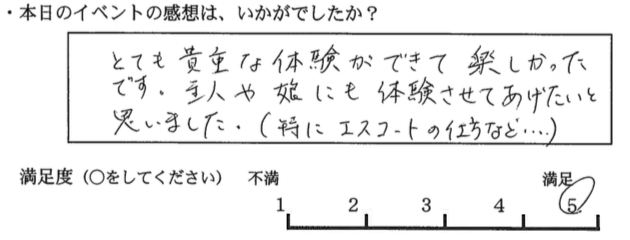 ・本日のイベントの感想は、いかがでしたか？
とても貴重な体験ができて楽しかった
です。主人や娘にも体験させてあげたいと
思いました。(特にエスコートの仕方など…)
満足度（○をしてください） 不満 満足
1 2 3 4 5